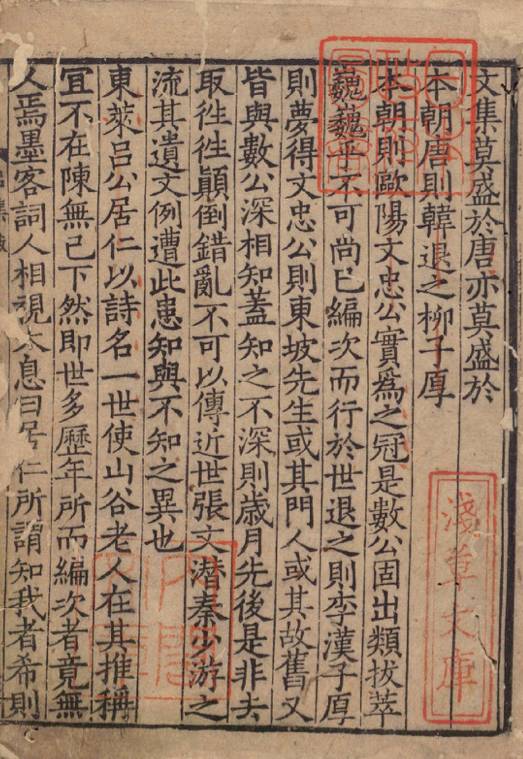 文集莫盛於唐亦莫盛於
本朝唐則韓退之柳子厚
本朝則歐陽文忠公實爲之冠是數公固出類拔萃
巍巍乎不可尚已編次而行於世退之則李漢子厚
則夢得文忠公則東坡先生或其門人或其故舊又
皆與數公深相知蓋知之不深則歲月先後是非去
取徃徃顚倒錯亂不可以傳近世張文潜秦少游之
流其遺文例遭此患知與不知之異也
東萊吕公居仁以詩名一世使山谷老人在其推稱
宜不在陳無己下然即世多歷年所而編次者竟無
人焉墨客詞人相視太息曰居仁所謂知我者希則
淺草文庫